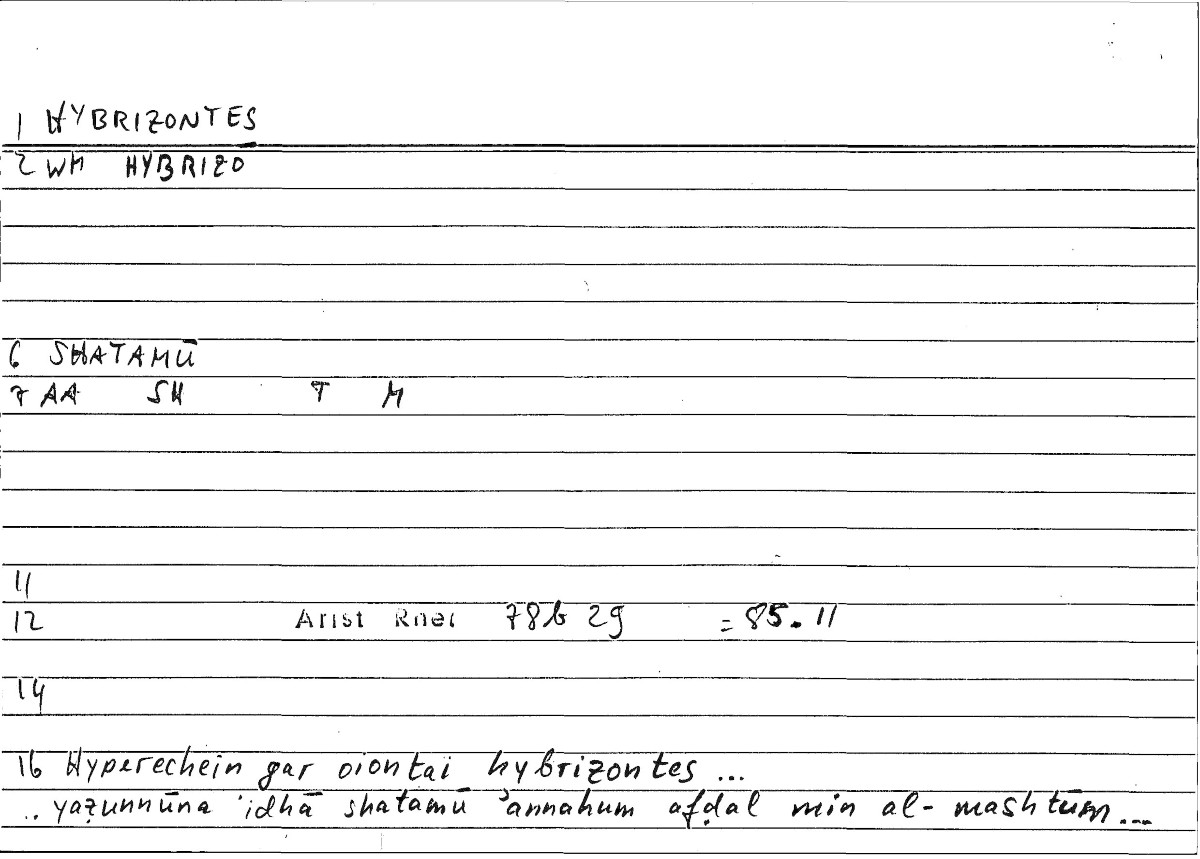 1 HYBRIZONTES
2 WH HYBRIZO
6 SHATAMŪ
7 AA SH T M
11
12 Arist Rhet 78b 29 = 85.11
14
16 Hyperechein gar oiontai hybrizontes ...
.. yaẓunnūna 'idhā shatamū 'annahum afḍal min al-mashtūm ...